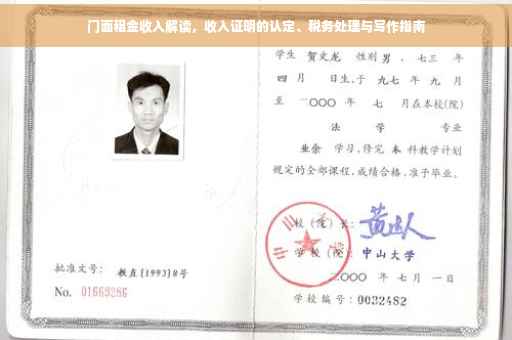 门面租金收入解读，收入证明的认定、税务处理与写作指南
学生 贺文龙 性别 男 ，七三 年
四 月 日生，于 九七 年 九 月
至 二000 年 七 月在本校(院)
法 学 专业
业余 学习，修完 本 科教学计划
规定的全部课程，成绩合格，准予毕业。
校（院）长：
学校（院）：中山大学
二000 年 七 月 一 日
学校编号：0032482
批准文号：教直[1993]8号
No. 01669286